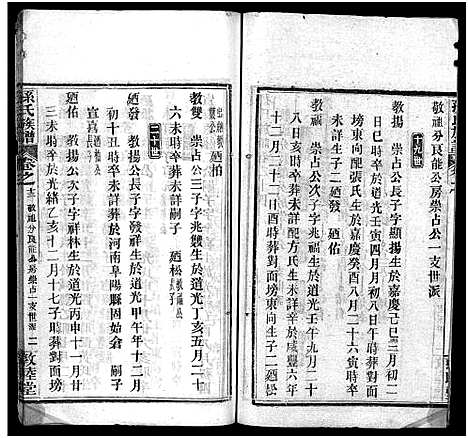 敬祖分良能公房崇占公一支世派
十九世
教揚 崇占公長子字顯揚生於嘉慶己巳三月初二
日巳時卒於道光壬寅四月初八日午時葬對面
塝東向配張氏生於嘉慶癸酉八月二十六寅時卒
未詳生子二廼發 廼佑
教福 崇占公次子字兆福生於道光壬午九月二十
八日亥時卒葬未詳配方氏生未詳卒於咸豐六年
十二月二十二日酉時葬對面塝東向生子二廼松
廼柏
教雙 崇占公三子字兆雙生於道光丁亥五月二十
六未時卒未詳葬嗣子廼松
二十世
廼發 教揚公長子字發祥生於道光甲午年十二月
初十丑時卒葬於河南阜陽縣固始侖 嗣子
廼佑 教揚公次子字祥林生於道光丙申十一月初
三未時卒於光緒乙亥十二月十七子時葬對面塝
孫氏族譜 卷之一 敬祖分良能公房崇占一支世派 二 敦睦堂